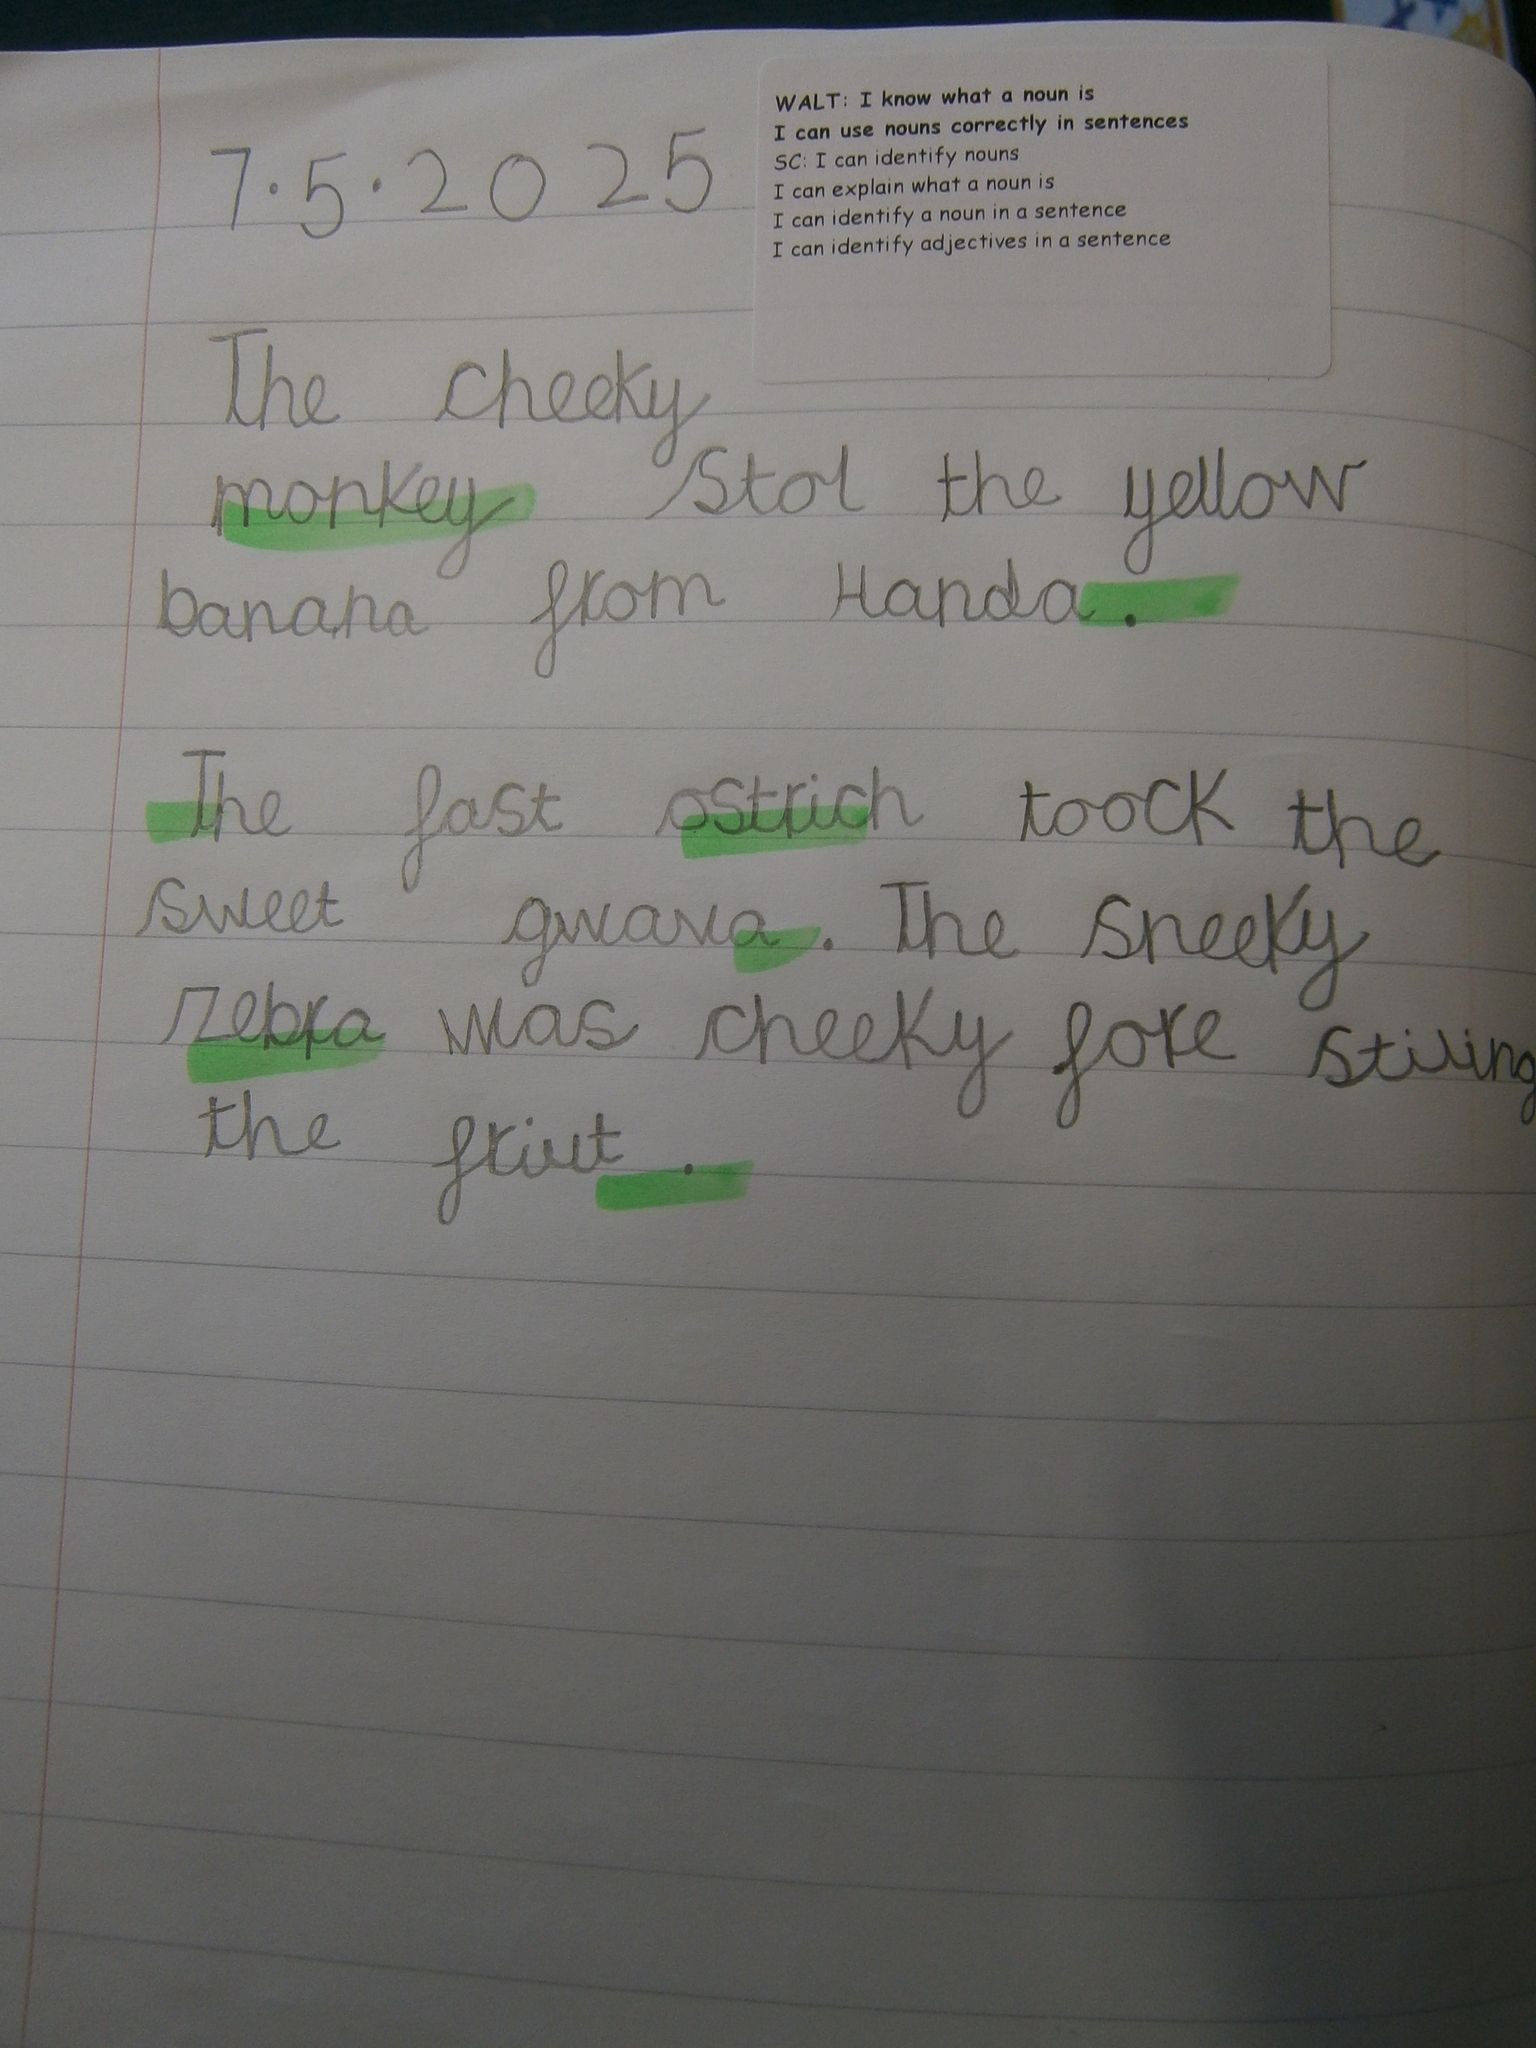 WALT: I know what a noun is
I can use nouns correctly in sentences
SC: I can identify nouns
I can explain what a noun is
I can identify a noun in a sentence
I can identify adjectives in a sentence
7.5.2025
The cheeky
monkey stol the yellow
banana from Handa.
The fast ostrich toock the
sweet gwava. The sneeky
zebra was cheeky fore stiling
the friut.